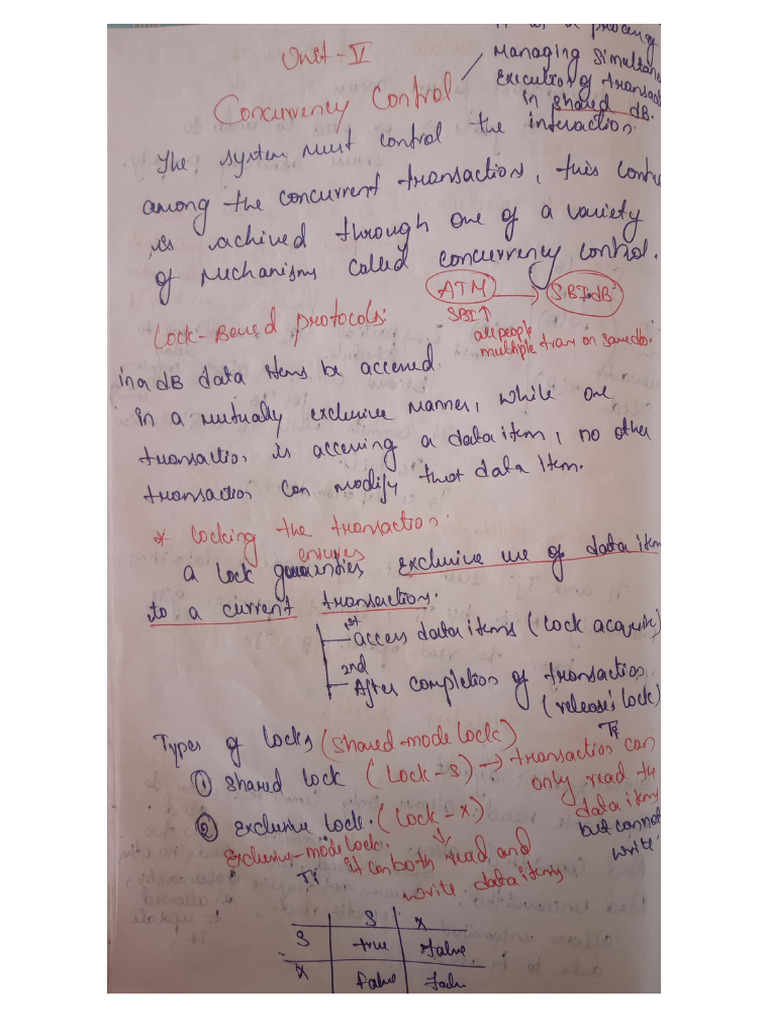 Unit-V
it is a process of
Managing Simultane
Execution of transac
in shared dB.
Concurrency Control
The system must control the interaction
among the concurrent transaction, this contr
is achived through one of a variety
of mechanisms called concurrency control.
ATM → SBI dB
SBI ↑
all people
multiple tran on same db.
Lock-Based Protocols:
in a dB data items be accessed
in a mutually exclusive manner, while one
transaction is accessing a data item, no other
transaction can modify that data item.
* locking the transaction.
ensures
a lock guarantees exclusive use of data item
to a current transaction.
1st
access data items (lock acquire)
2nd
After completion of transaction
(release's lock)
Types of locks (Shared-mode lock)
① Shared lock (Lock-S) → transaction can
Ti
only read the
data item
but cannot
write.
② exclusive lock. (Lock-X)
Exclusive-mode lock.
it can both read and
Ti
write data items
S X
S true false
X false